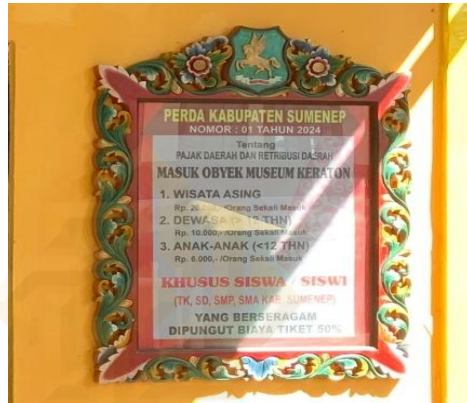 PERDA KABUPATEN SUMENEP
NOMOR : 01 TAHUN 2024
Tentang
PAJAK DAERAH DAN RETRIBUSI DAERAH
MASUK OBYEK MUSEUM KERATON
1. WISATA ASING
Rp. 20.000,- /Orang Sekali Masuk
2. DEWASA (> 12 THN)
Rp. 10.000,- /Orang Sekali Masuk
3. ANAK-ANAK (<12 THN)
Rp. 6.000,- /Orang Sekali Masuk
KHUSUS SISWA / SISWI
(TK, SD, SMP, SMA KAB. SUMENEP)
YANG BERSERAGAM
DIPUNGUT BIAYA TIKET 50%